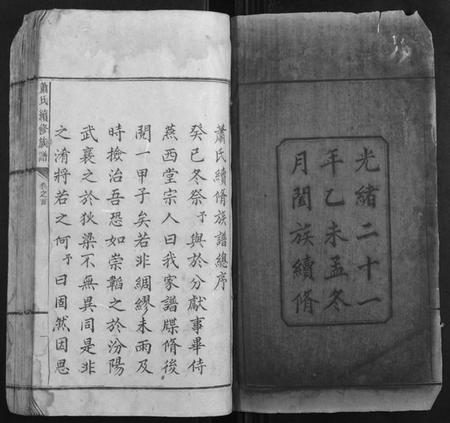 光緒二十一
年乙未孟冬
月闔族續脩
蕭氏續脩族譜總序
癸巳冬祭予與於分獻事畢侍
燕西堂宗人曰我家譜牒脩後
閱一甲子矣若非綢繆未雨及
時撿治吾恐如崇韜之於汾陽
武襄之於狄梁不無異同是非
之淆將若之何予曰固然因思
蕭氏續修族譜
卷之首
一